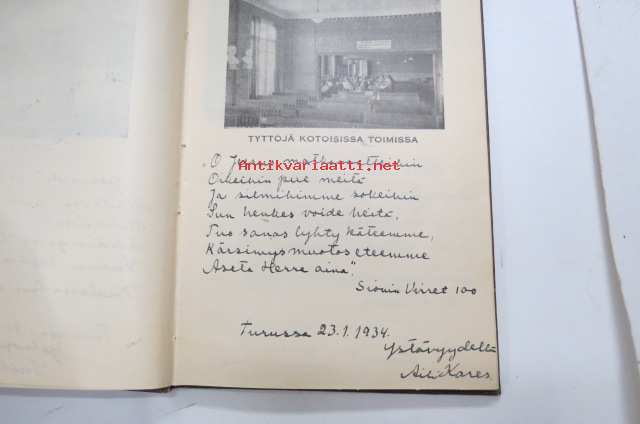 TYTTÖJÄ KOTOISISSA TOIMISSA
Antikvariaatti.net
„O Jeesus
Oikeihin pue meitä
Ja silmihimme sokeihin
Sun henkes voide heitä,
Tuo sanas lyhty käteemme,
Kärsimysmuotos eteemme
Aseta Herre aina".
Siionin Virret 100
Turussa 23.1.1934.
Ystävyydellä
Aili Kares